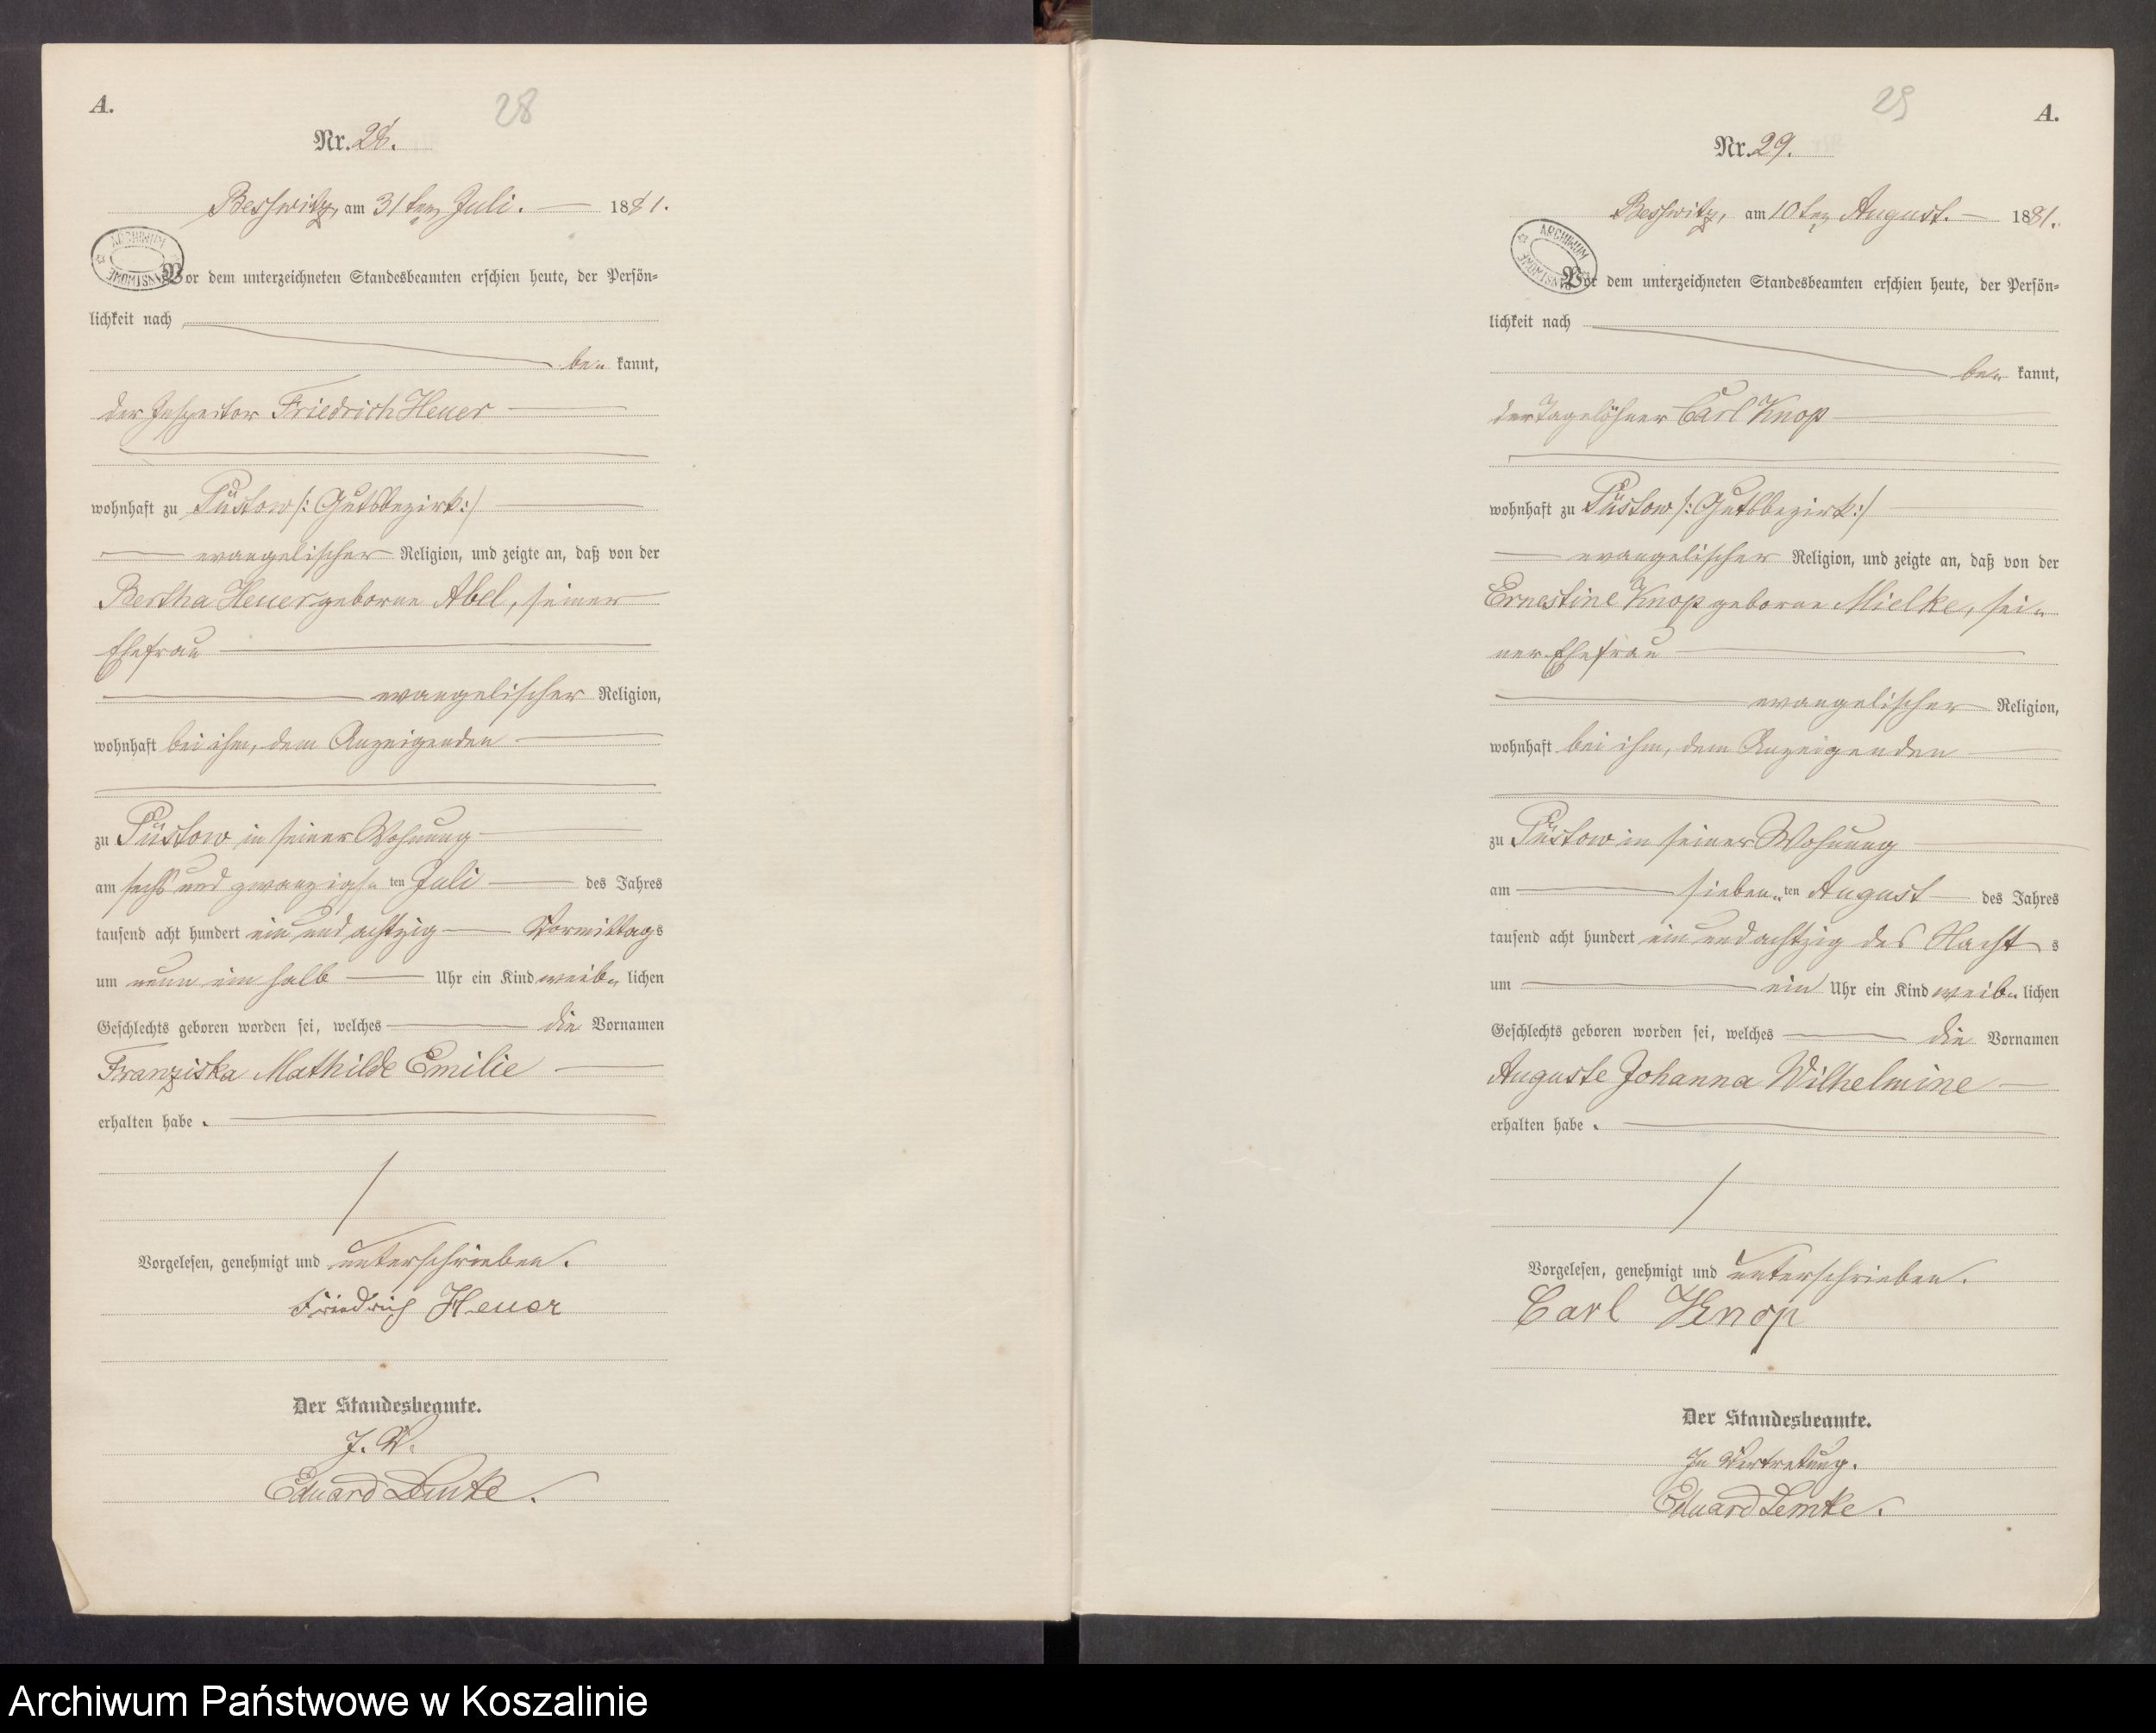 A.
28
Nr. 28.
Besswitz, am 31ten Juli. 1881.
ARCHIWUM PAŃSTWOWE
Vor dem unterzeichneten Standesbeamten erschien heute, der Persön=
lichkeit nach
be= kannt,
der Inspektor Friedrich Heuer
wohnhaft zu Püstow /: Gutsbezirk :/
evangelischer Religion, und zeigte an, daß von der
Bertha Heuer geborne Abel, seiner
Ehefrau
evangelischer Religion,
wohnhaft bei ihm, dem Anzeigenden
zu Püstow in seiner Wohnung
am sechs und zwanzigs= ten Juli des Jahres
tausend acht hundert ein und achtzig Vormittags
um neun ein halb Uhr ein Kind weib= lichen
Geschlechts geboren worden sei, welches die Vornamen
Franziska Mathilde Emilie
erhalten habe.
Vorgelesen, genehmigt und unterschrieben.
Friedrich Heuer
Der Standesbeamte.
J. V.
Eduard Lemke.
29
A.
Nr. 29.
Besswitz, am 10ten August. 1881.
ARCHIWUM PAŃSTWOWE
Vor dem unterzeichneten Standesbeamten erschien heute, der Persön=
lichkeit nach
be= kannt,
der Tagelöhner Carl Knop
wohnhaft zu Püstow /: Gutsbezirk :/
evangelischer Religion, und zeigte an, daß von der
Ernestine Knop geborne Mielke, sei=
ner Ehefrau
evangelischer Religion,
wohnhaft bei ihm, dem Anzeigenden
zu Püstow in seiner Wohnung
am sieben= ten August des Jahres
tausend acht hundert ein und achtzig des Nacht s
um ein Uhr ein Kind weib= lichen
Geschlechts geboren worden sei, welches die Vornamen
Auguste Johanna Wilhelmine
erhalten habe.
Vorgelesen, genehmigt und unterschrieben.
Carl Knop
Der Standesbeamte.
In Vertretung.
Eduard Lemke.
Archiwum Państwowe w Koszalinie